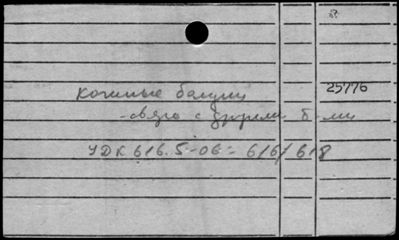 Кожные болезни 25776
-связь с другими б-ми
УДК 616.5-06=616/618